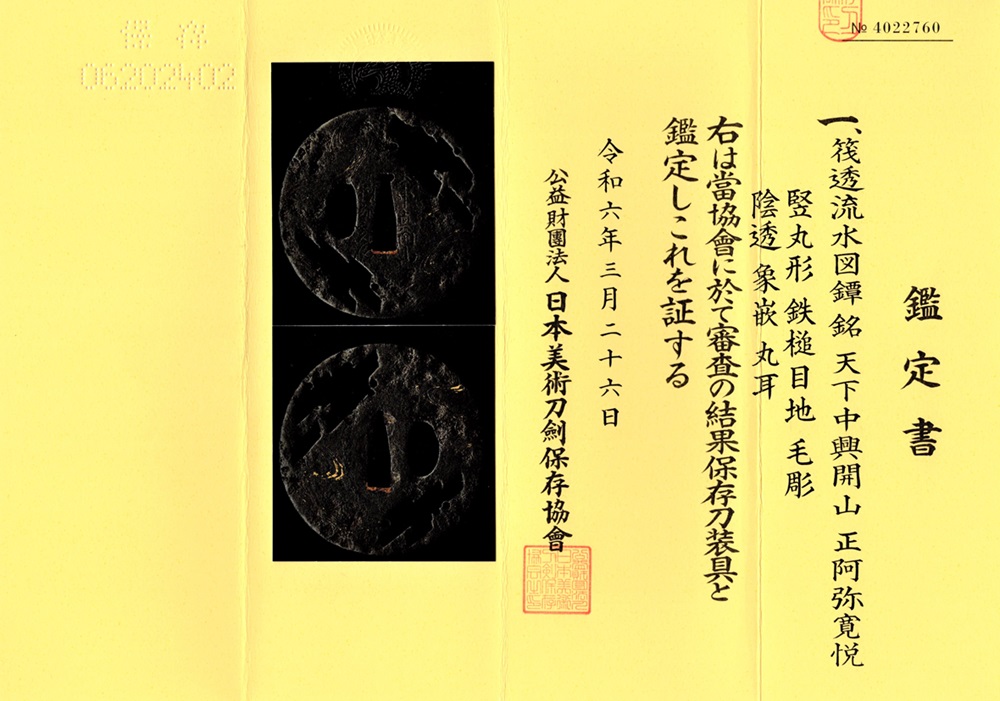 鑑定書
一、筏透流水図鐔 銘 天下中興開山 正阿弥寛悦
竪丸形 鉄槌目地 毛彫
陰透 象嵌 丸耳
右は當協會に於て審査の結果保存刀装具と
鑑定しこれを証する
令和六年三月二十六日
公益財團法人 日本美術刀劍保存協會
№ 4022760
保存
06202402